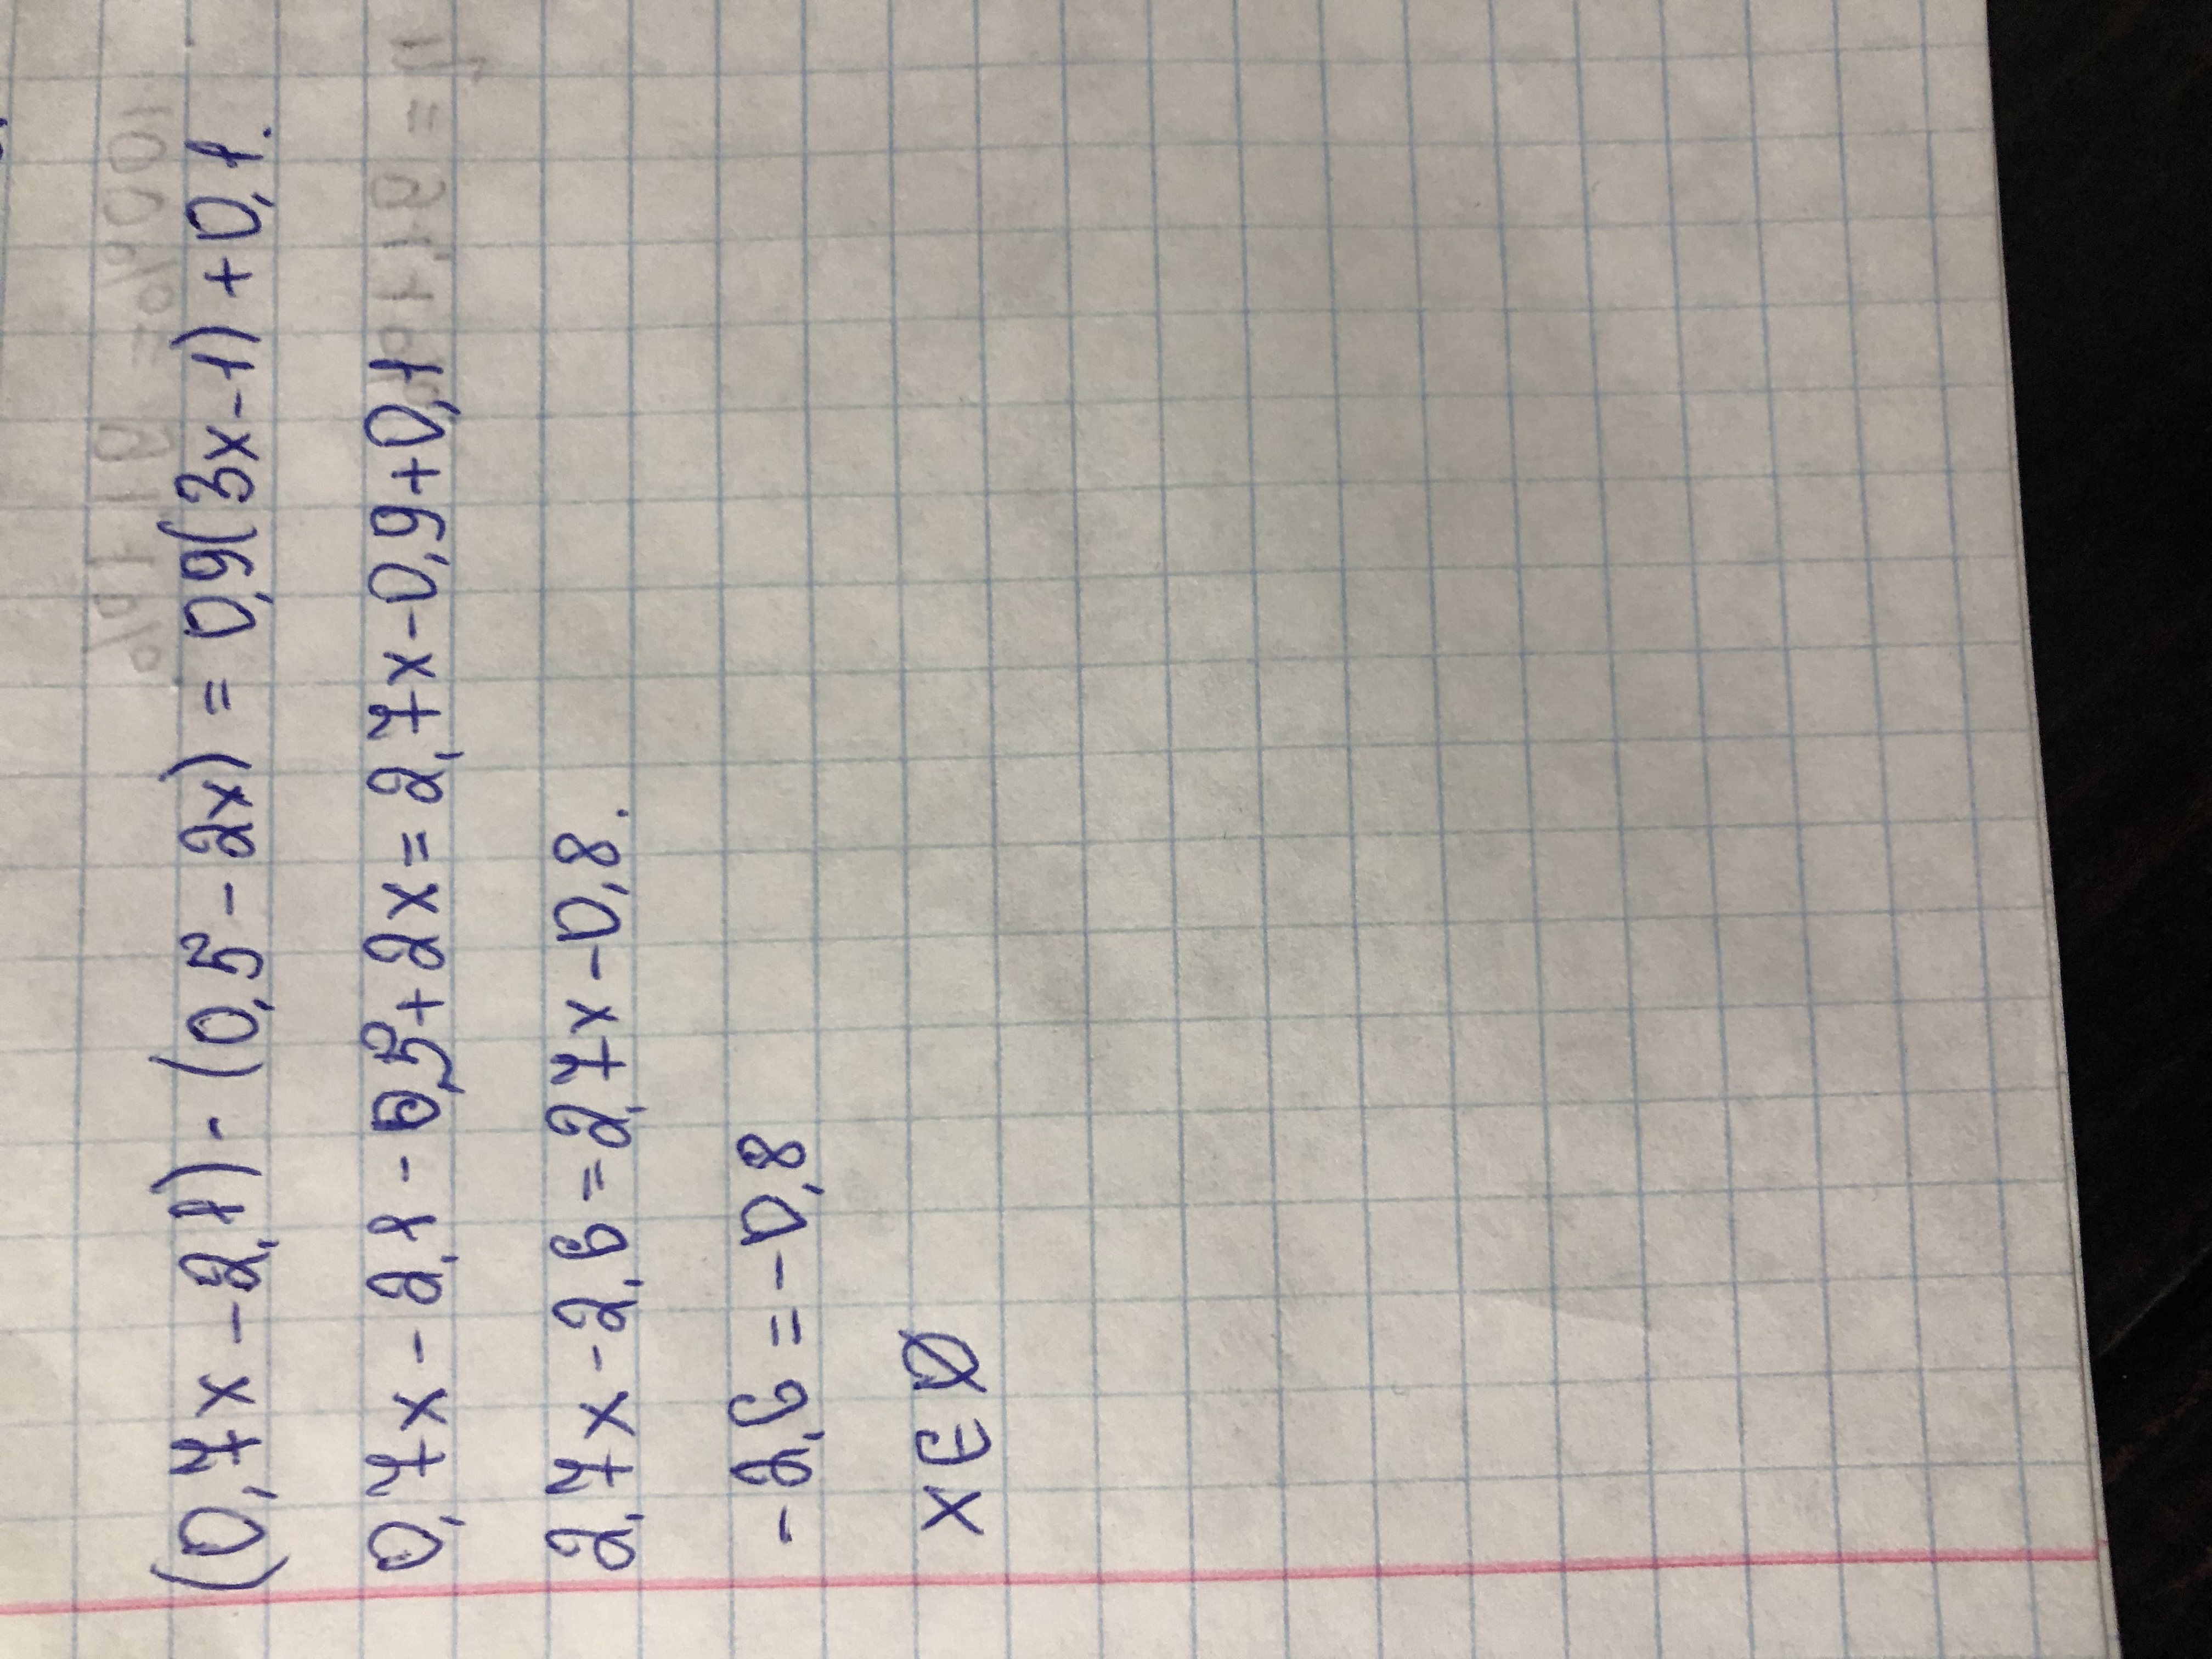 (0,7x - 2,1) - (0,5 - 2x) = 0,9(3x - 1) + 0,1.
0,7x - 2,1 - 0,5 + 2x = 2,7x - 0,9 + 0,1
2,7x - 2,6 = 2,7x - 0,8.
-2,6 = -0,8
x ∈ Ø